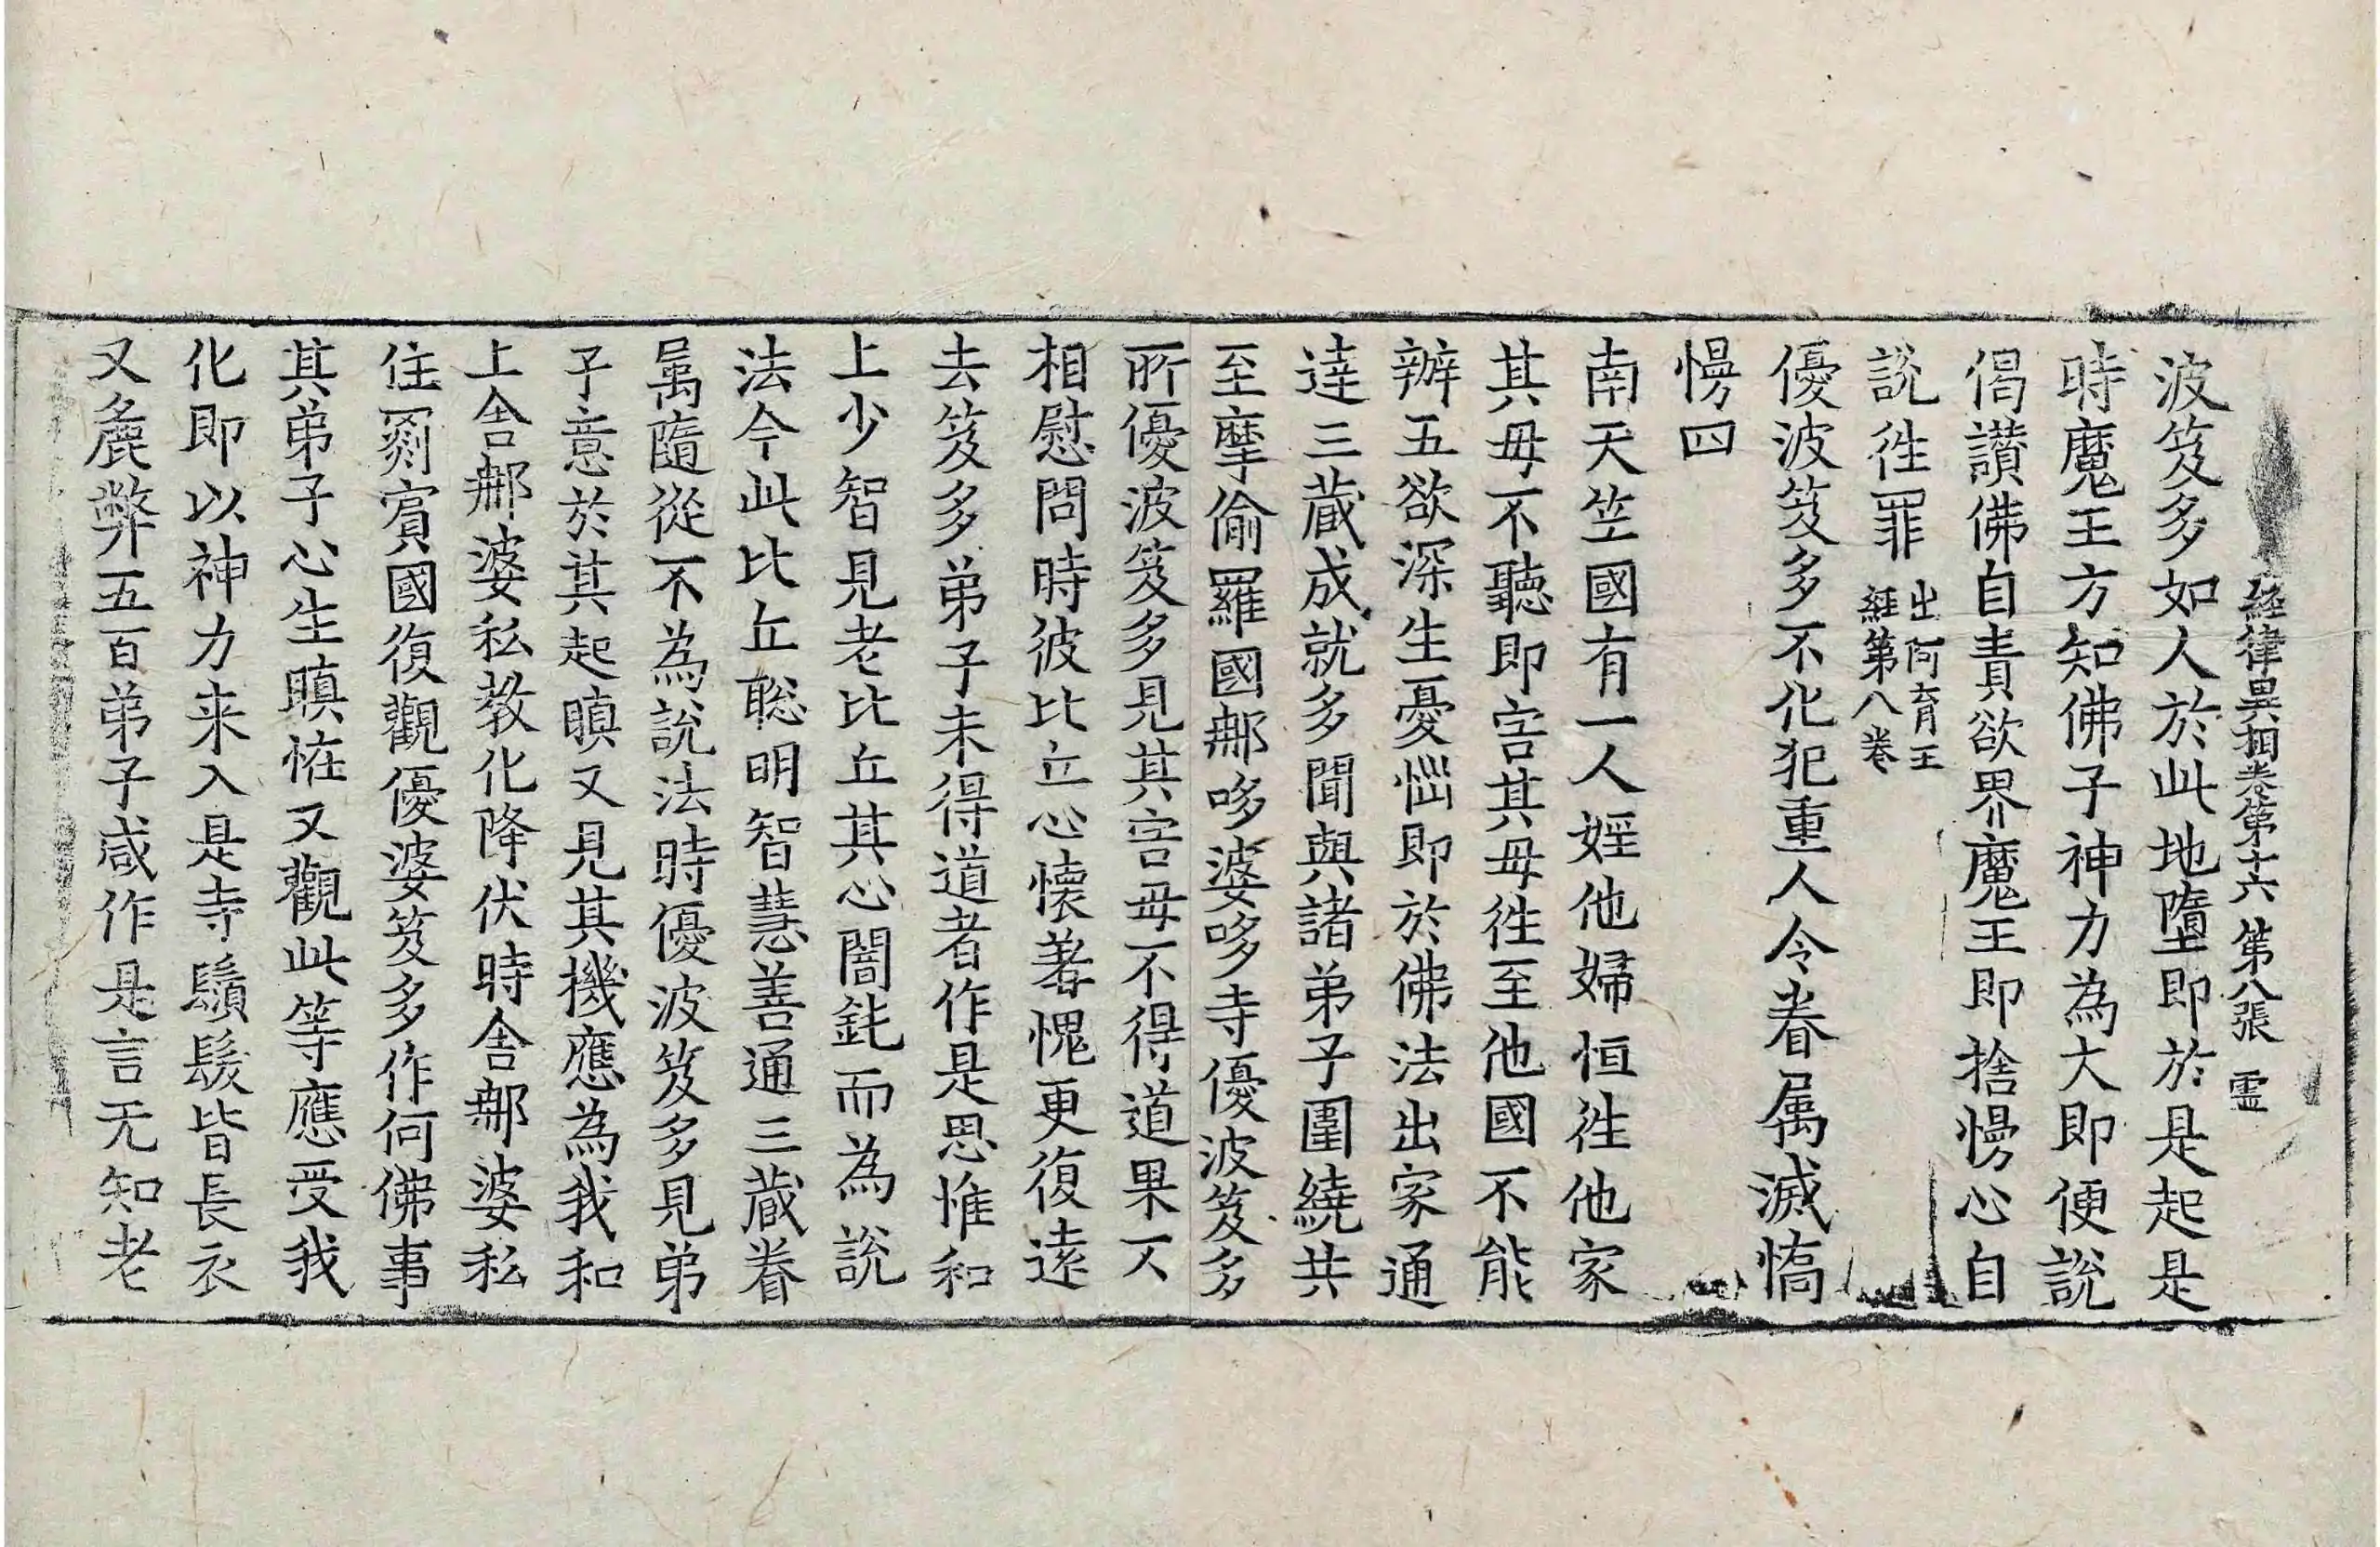 經律異相卷第十六 第八張 霊
波笈多如人於此地墮即於是起是
時魔王方知佛子神力為大即便說
偈讃佛自責欲界魔王即捨慢心自
說徃罪 出阿育王經第八卷
優波笈多不化犯重人令眷属滅憍
慢四
南天竺國有一人婬他婦恒徃他家
其母不聽即害其母徃至他國不能
辦五欲深生憂惱即於佛法出家通
達三蔵成就多聞與諸弟子圍繞共
至摩偷羅國郍哆婆哆寺優波笈多
所優波笈多見其害母不得道果不
相慰問時彼比丘心懷著愧更復遠
去笈多弟子未得道者作是思惟和
上少智見老比丘其心闇鈍而為說
法今此比丘聡明智慧善通三蔵眷
属隨從不為說法時優波笈多見弟
子意於其起瞋又見其機應為我和
上舍郍婆私教化降伏時舍郍婆私
住罽賔國復觀優婆笈多作何佛事
其弟子心生瞋恠又觀此等應受我
化即以神力来入是寺鬚髮皆長衣
又麁弊五百弟子咸作是言无知老